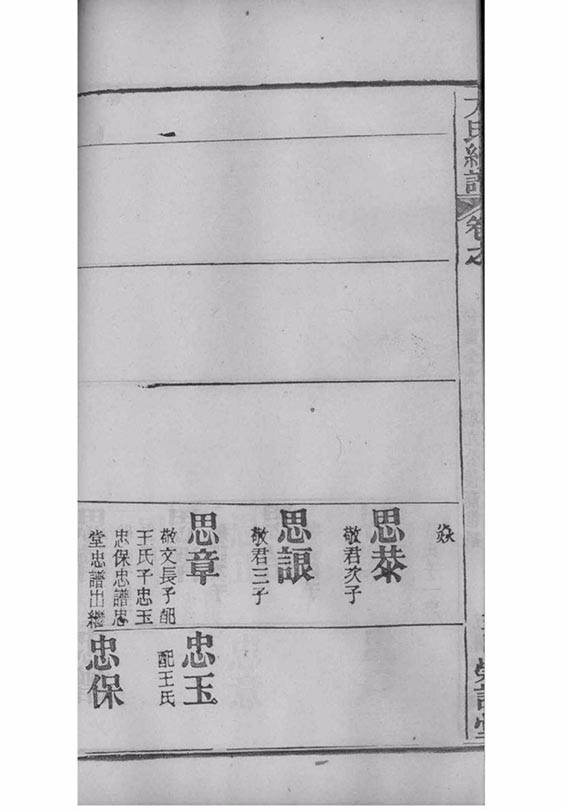 氏
譜
卷之
焱
思恭
敬君次子
思詪
敬君三子
思章
敬文長子配
王氏子忠玉
忠保忠譜忠
堂忠譜出繼
忠玉
配王氏
忠保